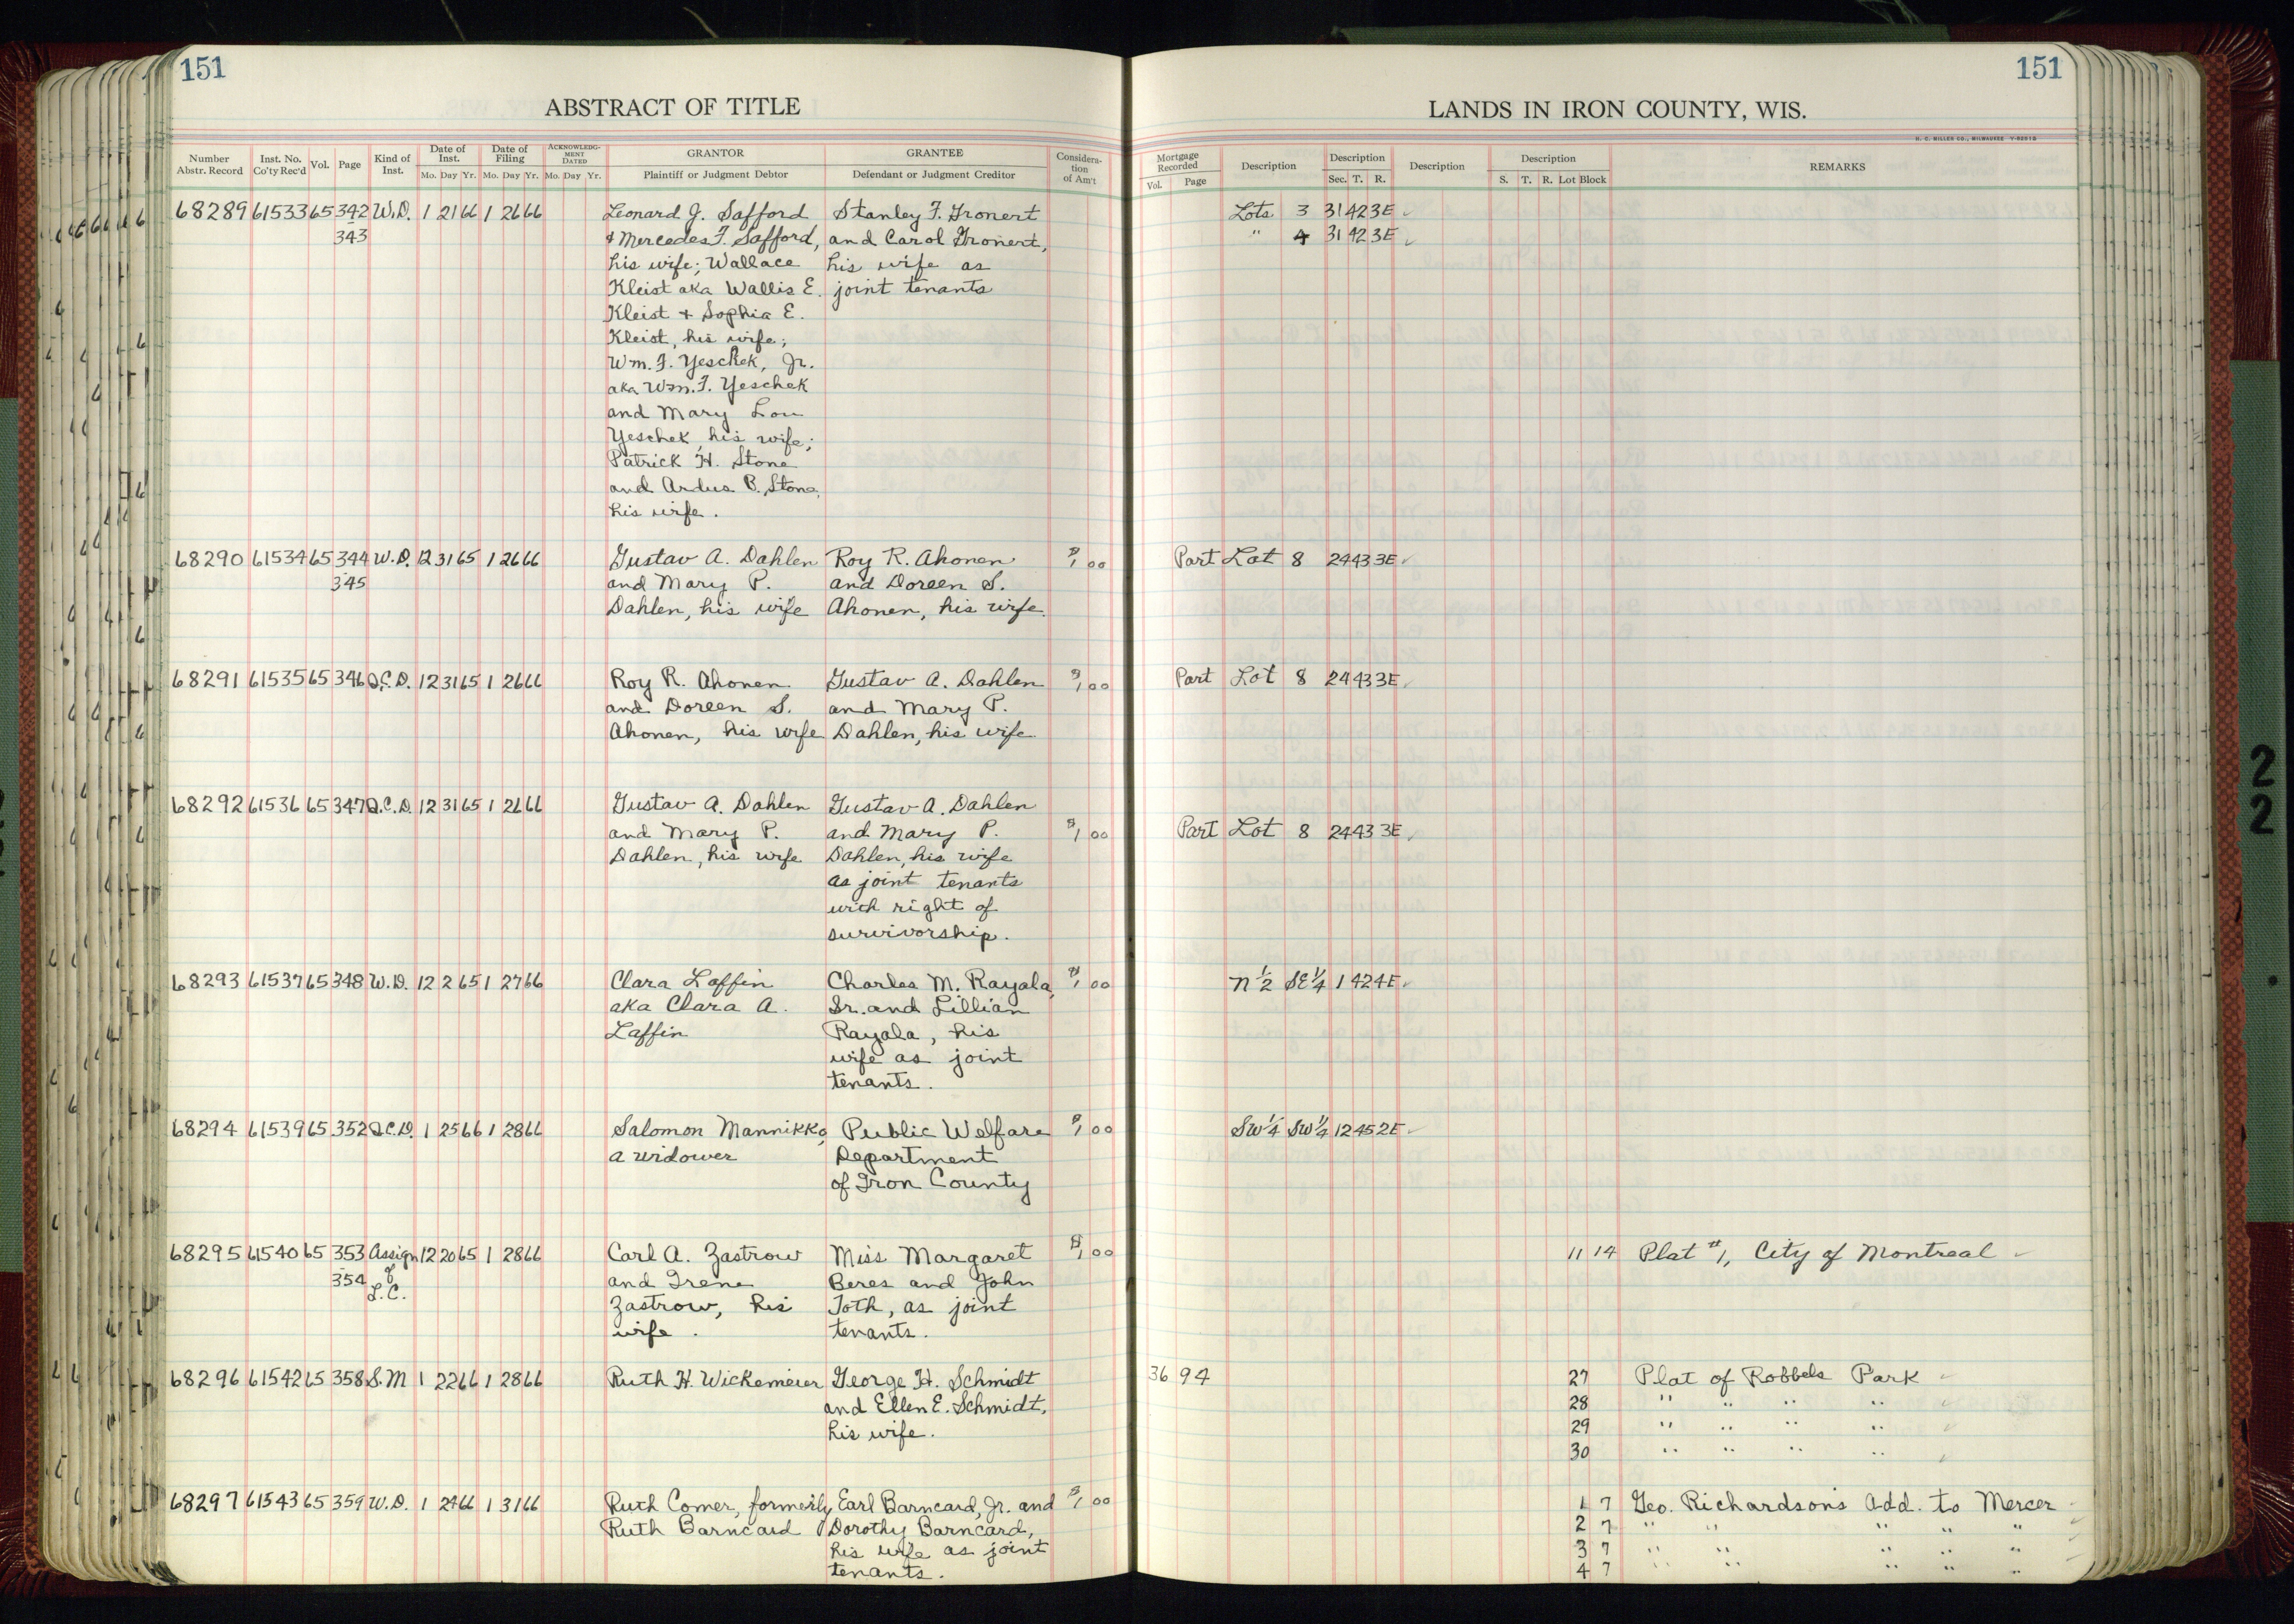 151
ABSTRACT OF TITLE
Number Abstr. Record | Inst. No. Co'ty Rec'd | Vol. | Page | Kind of Inst. | Date of Inst. Mo. Day Yr. | Date of Filing Mo. Day Yr. | ACKNOWLEDGMENT DATED Mo. Day Yr. | GRANTOR Plaintiff or Judgment Debtor | GRANTEE Defendant or Judgment Creditor | Consideration of Am't
151
LANDS IN IRON COUNTY, WIS.
H. C. MILLER CO., MILWAUKEE
Mortgage Recorded Vol. Page | Description | Description Sec. T. R. | Description | Description S. T. R. Lot Block | REMARKS
68289 61533 65 342 W.D. 1 21 66 1 26 66 Leonard J. Safford Stanley F. Gronert Lots 3 31 42 3E
343 & Mercedes F. Safford, and Carol Gronert, " 4 31 42 3E
his wife; Wallace his wife as
Kleist aka Wallis E. joint tenants
Kleist & Sophia E.
Kleist, his wife;
Wm. F. Yeschek, Jr.
aka Wm. F. Yeschek
and Mary Lou
Yeschek, his wife;
Patrick H. Stone
and Ardus B. Stone,
his wife.
68290 61534 65 344 W.D. 12 31 65 1 26 66 Gustav A. Dahlen Roy R. Ahonen $1 00 Part Lot 8 24 43 3E
345 and Mary P. and Doreen S.
Dahlen, his wife Ahonen, his wife.
68291 61535 65 346 Q.C.D. 12 31 65 1 26 66 Roy R. Ahonen Gustav A. Dahlen $1 00 Part Lot 8 24 43 3E
and Doreen S. and Mary P.
Ahonen, his wife Dahlen, his wife
68292 61536 65 347 Q.C.D. 12 31 65 1 26 66 Gustav A. Dahlen Gustav A. Dahlen
and Mary P. and Mary P. $1 00 Part Lot 8 24 43 3E
Dahlen, his wife Dahlen, his wife
as joint tenants
with right of
survivorship.
68293 61537 65 348 W.D. 12 2 65 1 27 66 Clara Laffin Charles M. Rayala, $1 00 N 1/2 SE 1/4 1 42 4E
aka Clara A. Sr. and Lillian
Laffin Rayala, his
wife as joint
tenants.
68294 61539 65 352 Q.C.D. 1 25 66 1 28 66 Salomon Mannikko, Public Welfare $1 00 SW 1/4 SW 1/4 12 45 2E
a widower Department
of Iron County
68295 61540 65 353 Assign 12 20 65 1 28 66 Carl A. Zastrow Miss Margaret $1 00 11 14 Plat #1, City of Montreal
354 of and Irene Beres and John
L.C. Zastrow, his Toth, as joint
wife. tenants.
68296 61542 65 358 S.M 1 22 66 1 28 66 Ruth H. Wickemeier George H. Schmidt 36 94 27 Plat of Robbels Park
and Ellen E. Schmidt, 28 " " " "
his wife. 29 " " " "
30 " " " "
68297 61543 65 359 W.D. 1 24 66 1 31 66 Ruth Comer, formerly Earl Barncard, Jr. and $1 00 1 7 Geo. Richardson's Add. to Mercer
Ruth Barncard Dorothy Barncard, 2 7 " " " " "
his wife as joint 3 7 " " " " "
tenants. 4 7 " " " " "
2
2